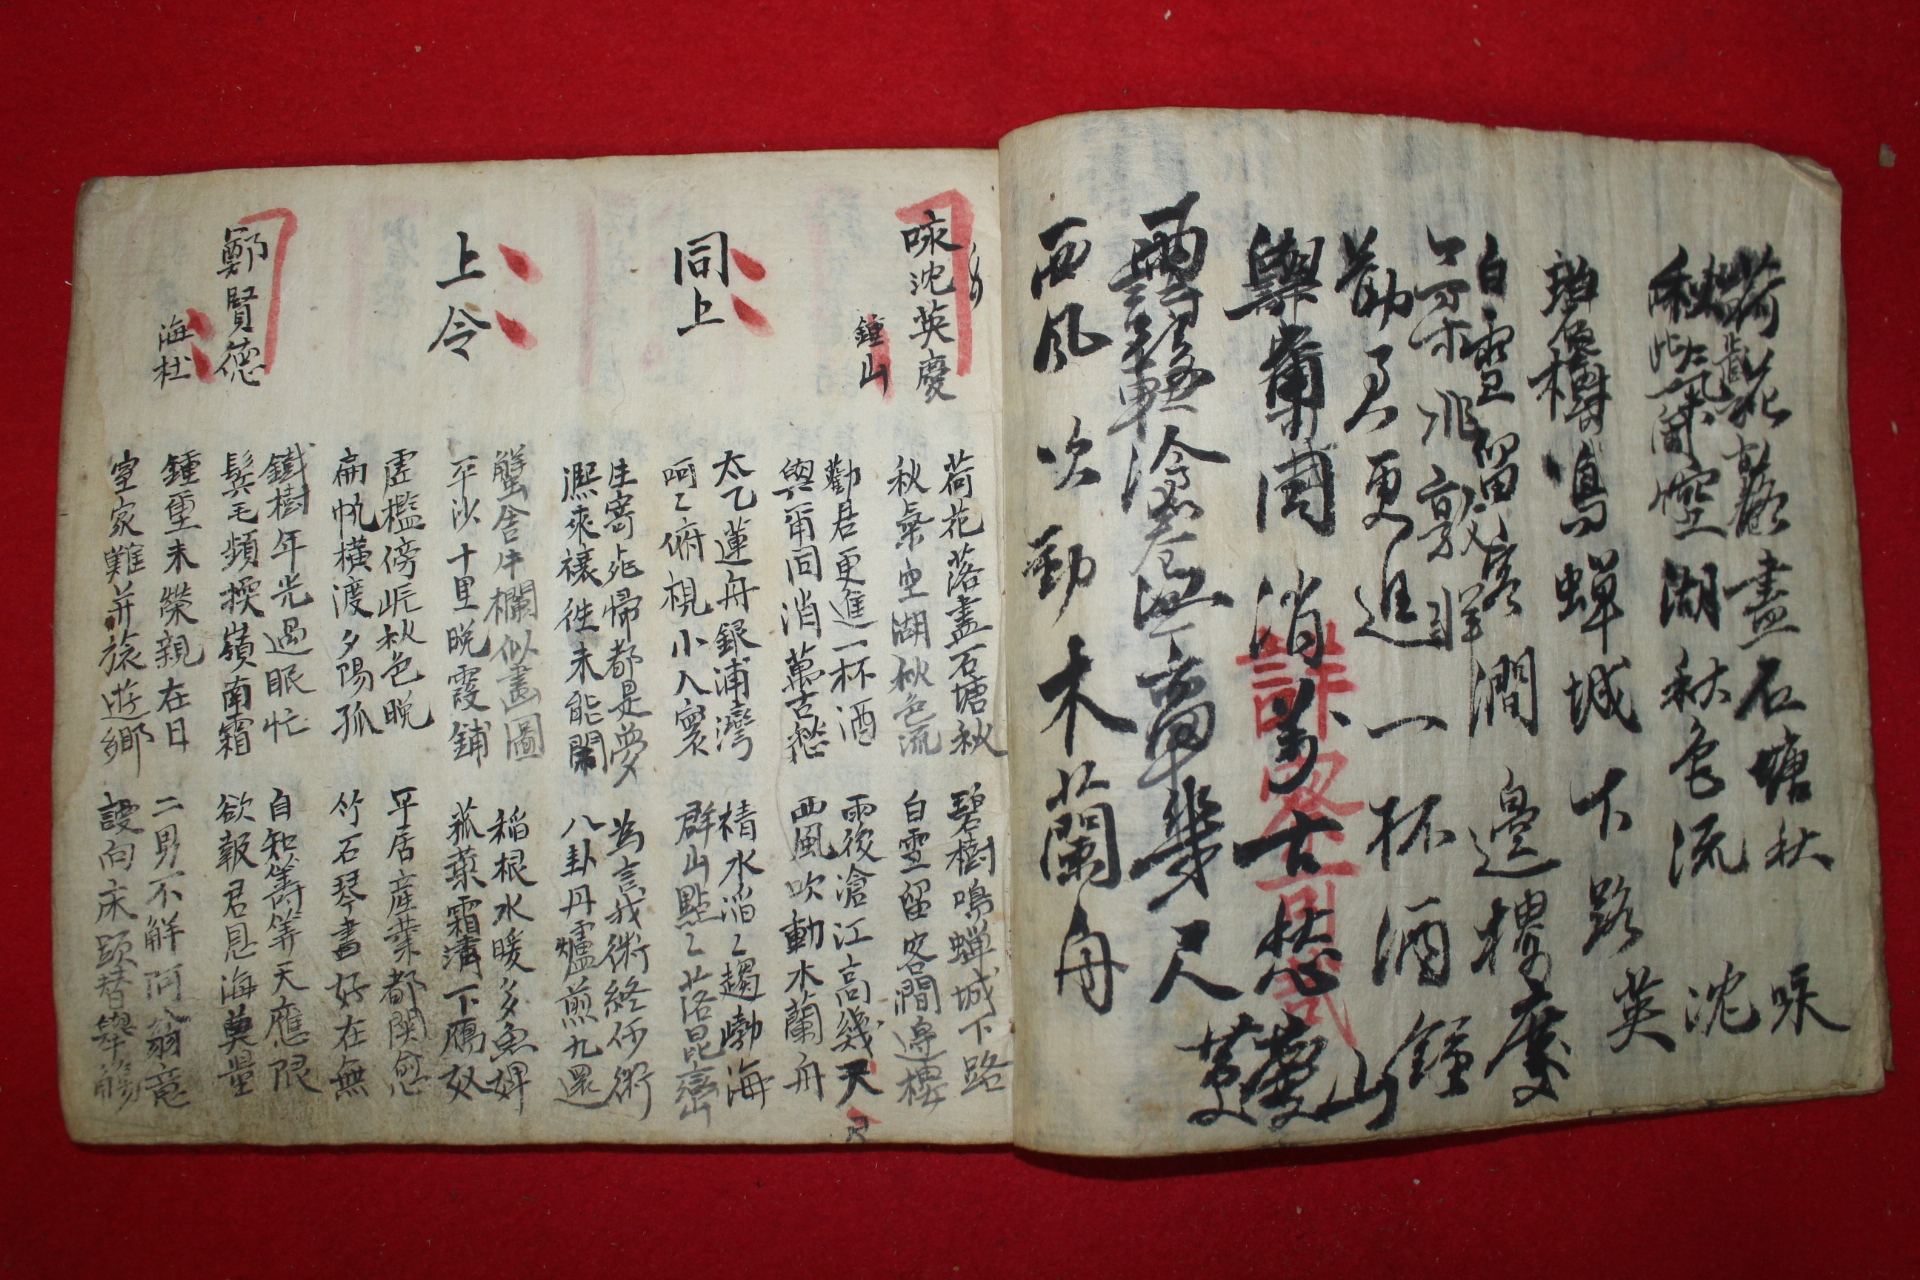 荷花落盡石塘秋 咏
秋氣空湖秋色流 沈
碧樹鳴蟬城下路 英
白雲留客澗邊樓 慶
勸君更進一杯酒 鍾
與爾同消萬古愁 山
雨後滄江高幾尺
西風吹動木蘭舟
咏沈英慶
鍾山
荷花落盡石塘秋 碧樹鳴蟬城下路
秋氣空湖秋色流 白雲留客澗邊樓
勸君更進一杯酒 雨後滄江高幾天尺
與爾同消萬古愁 西風吹動木蘭舟
同上
太乙蓮舟銀浦灣 積水滔〻趨渤海
呵〻俯視小人寰 群山點〻落昆巒
生寄死歸都是夢 為言我術終何術
來襄徃未能閑 八卦丹爐煎九還
上令
蟹舍牛欄似畵圖 稻根水暖多魚婢
平沙十里晩霞鋪 菰葉霜淸下鴈奴
虛檻傍岏秋色晩 平居産業都関念
扁帆橫渡夕陽孤 竹石琴書好在無
鄭賢德
海杜
鐵樹年光過眼忙 自知壽算天應限
鬂毛頻換嶺南霜 欲報君恩海莫量
鍾重未榮親在日 二男不解阿翁意
室家難并旅遊鄉 謾向床頭替擧觴